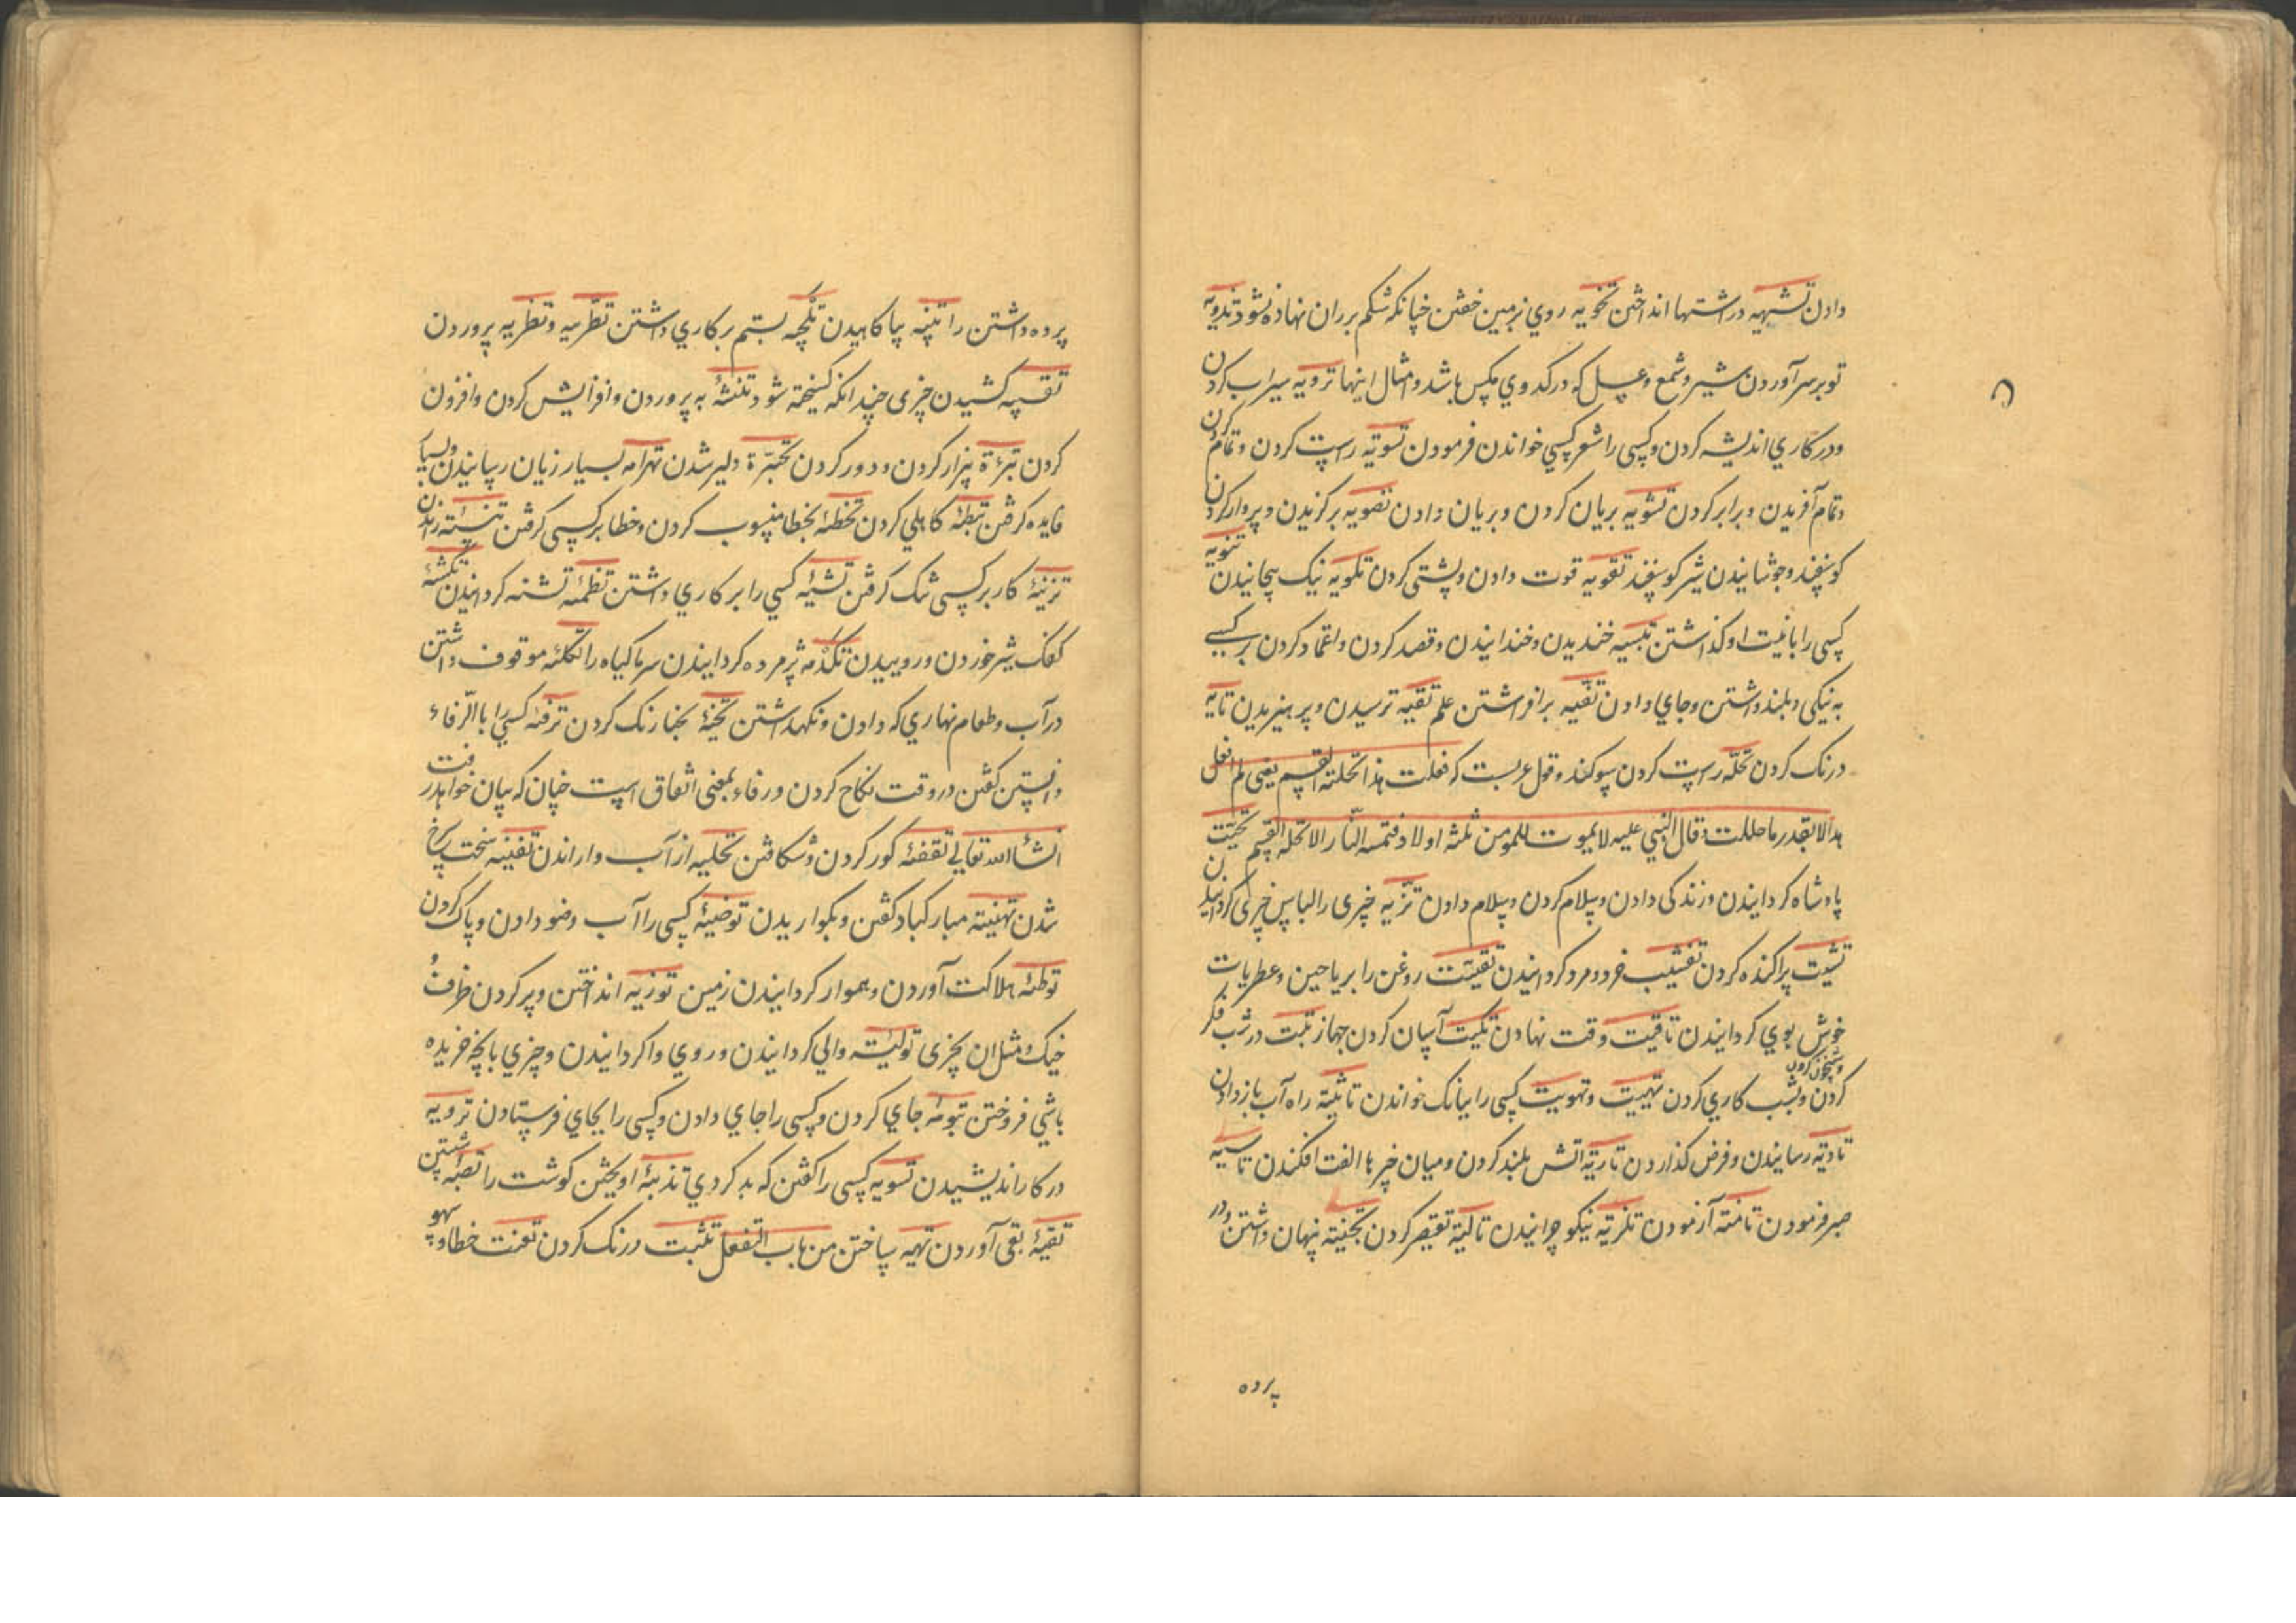 دادن تشهیه در اشتها انداختن تخویه روی بزمین خفتن چنانکه شکم بر ران نهاده نشود تدویه
توبر سر آوردن شیر و شمع و عسل که در کندوی مکس باشد و امثال اینها ترویه سیراب کردن
و در کاری اندیشه کردن و کسی را شعر کسی خواندن فرمودن تسویه راست کردن و تمام کردن
و تمام آفریدن و برابر کردن تشویه بریان کردن و بریان دادن تصویه برکزیدن و پروار کردن
کوسفند و جوشانیدن شیر کوسفند تقویه قوت دادن و پشتی کردن تلویه نیک پیچانیدن تنویه
کسی را بانیت او کذاشتن تبسیه خندیدن و خندانیدن و قصد کردن و اعتماد کردن بر کسی
به نیکی و بلند داشتن و جای دادن تغییه برافراشتن علم تقیه ترسیدن و پرهیزیدن تایه
درنک کردن تحله راست کردن سوکند و قول عربست که فعلت هذا تحلة القسم یعنی لم افعل
هذا الا بقدر ما حللت و قال النبی علیه لا یموت للمومن ثلثه اولاد فتمسه النار الا تحلة القسم تحیّت
پادشاه کردانیدن و زندکی دادن و سلام کردن و سلام دادن تزیّیه چیزی را لباس چیزی کردانیدن
تشتیت پراکنده کردن تفتیت خرد و مرد کردانیدن تقتیت روغن را بریاحین و عطریات
خوش بوی کردانیدن تاقیت وقت نهادن تکیت آسان کردن جهاز تبیت در شب فکر
و شبیخون کردن
کردن و بشب کاری کردن تهییت و تهویت کسی را ببانک خواندن تاتیة راه آب باز دادن
تادیة رسانیدن و فرض کذاردن تاریة آتش بلند کردن و میان چیزها الفت افکندن تاسیه
صبر فرمودن تامنة آزمودن تلزیة نیکو چرانیدن تالیة تقصیر کردن تجنیة پنهان داشتن و در
پرده
پرده داشتن را تنیه بپا کاهیدن تلجیه بستم بر کاری داشتن تطریه و تطریه پروردن
تقسیه کشیدن چیزی چندانکه کسیخته شود تنشئه به پروردن و افزایش کردن و افزون
کردن تبرءة بیزار کردن و دور کردن تجبرة دلیر شدن تهرامه بسیار زیان رسانیدن و بسیار
فایده کرفتن تبطئة کاهلی کردن تخطئة بخطا منسوب کردن و خطا بر کسی کرفتن
تزنئة کار بر کسی تنک کرفتن تشیئة کسی را بر کاری داشتن تظمئة تشنه کردانیدن تکشئة
کفک شیر خوردن و روییدن تکدئه پژمرده کردانیدن سرما کیاه را تکلئه موقوف داشتن
در آب و طعام نهاری که دادن و نکهداشتن تحنئة بحنا رنک کردن ترفئة کسی را بالرفاء
و البنین کفتن در وقت نکاح کردن و رفاء بمعنی اتفاق است چنان که بیان خواهد رفت
انشاء الله تعالی تفقئة کور کردن و شکافتن تحلیه از آب وا راندن تقنیه سخت سرخ
شدن تهنیته مبارکباد کفتن و بکواریدن توضیئة کسی را آب وضو دادن و پاک کردن
توطئة هلاکت آوردن و هموار کردانیدن زمین توزیه انداختن و پر کردن ظرف و
خیک و مثل آن بچیزی تولیّه والی کردانیدن و روی وا کردانیدن و چیزی بانچه خریده
باشی فروختن تبوئة جای کردن و کسی را جای دادن و کسی را بجای فرستادن ترویه
در کار اندیشیدن تسویه کسی را کفتن که بد کردی تذیئة آویختن کوشت را
تقیئة بقی آوردن تهیه ساختن من باب التفعل تثبت درنک کردن تعنت خطا و سهو